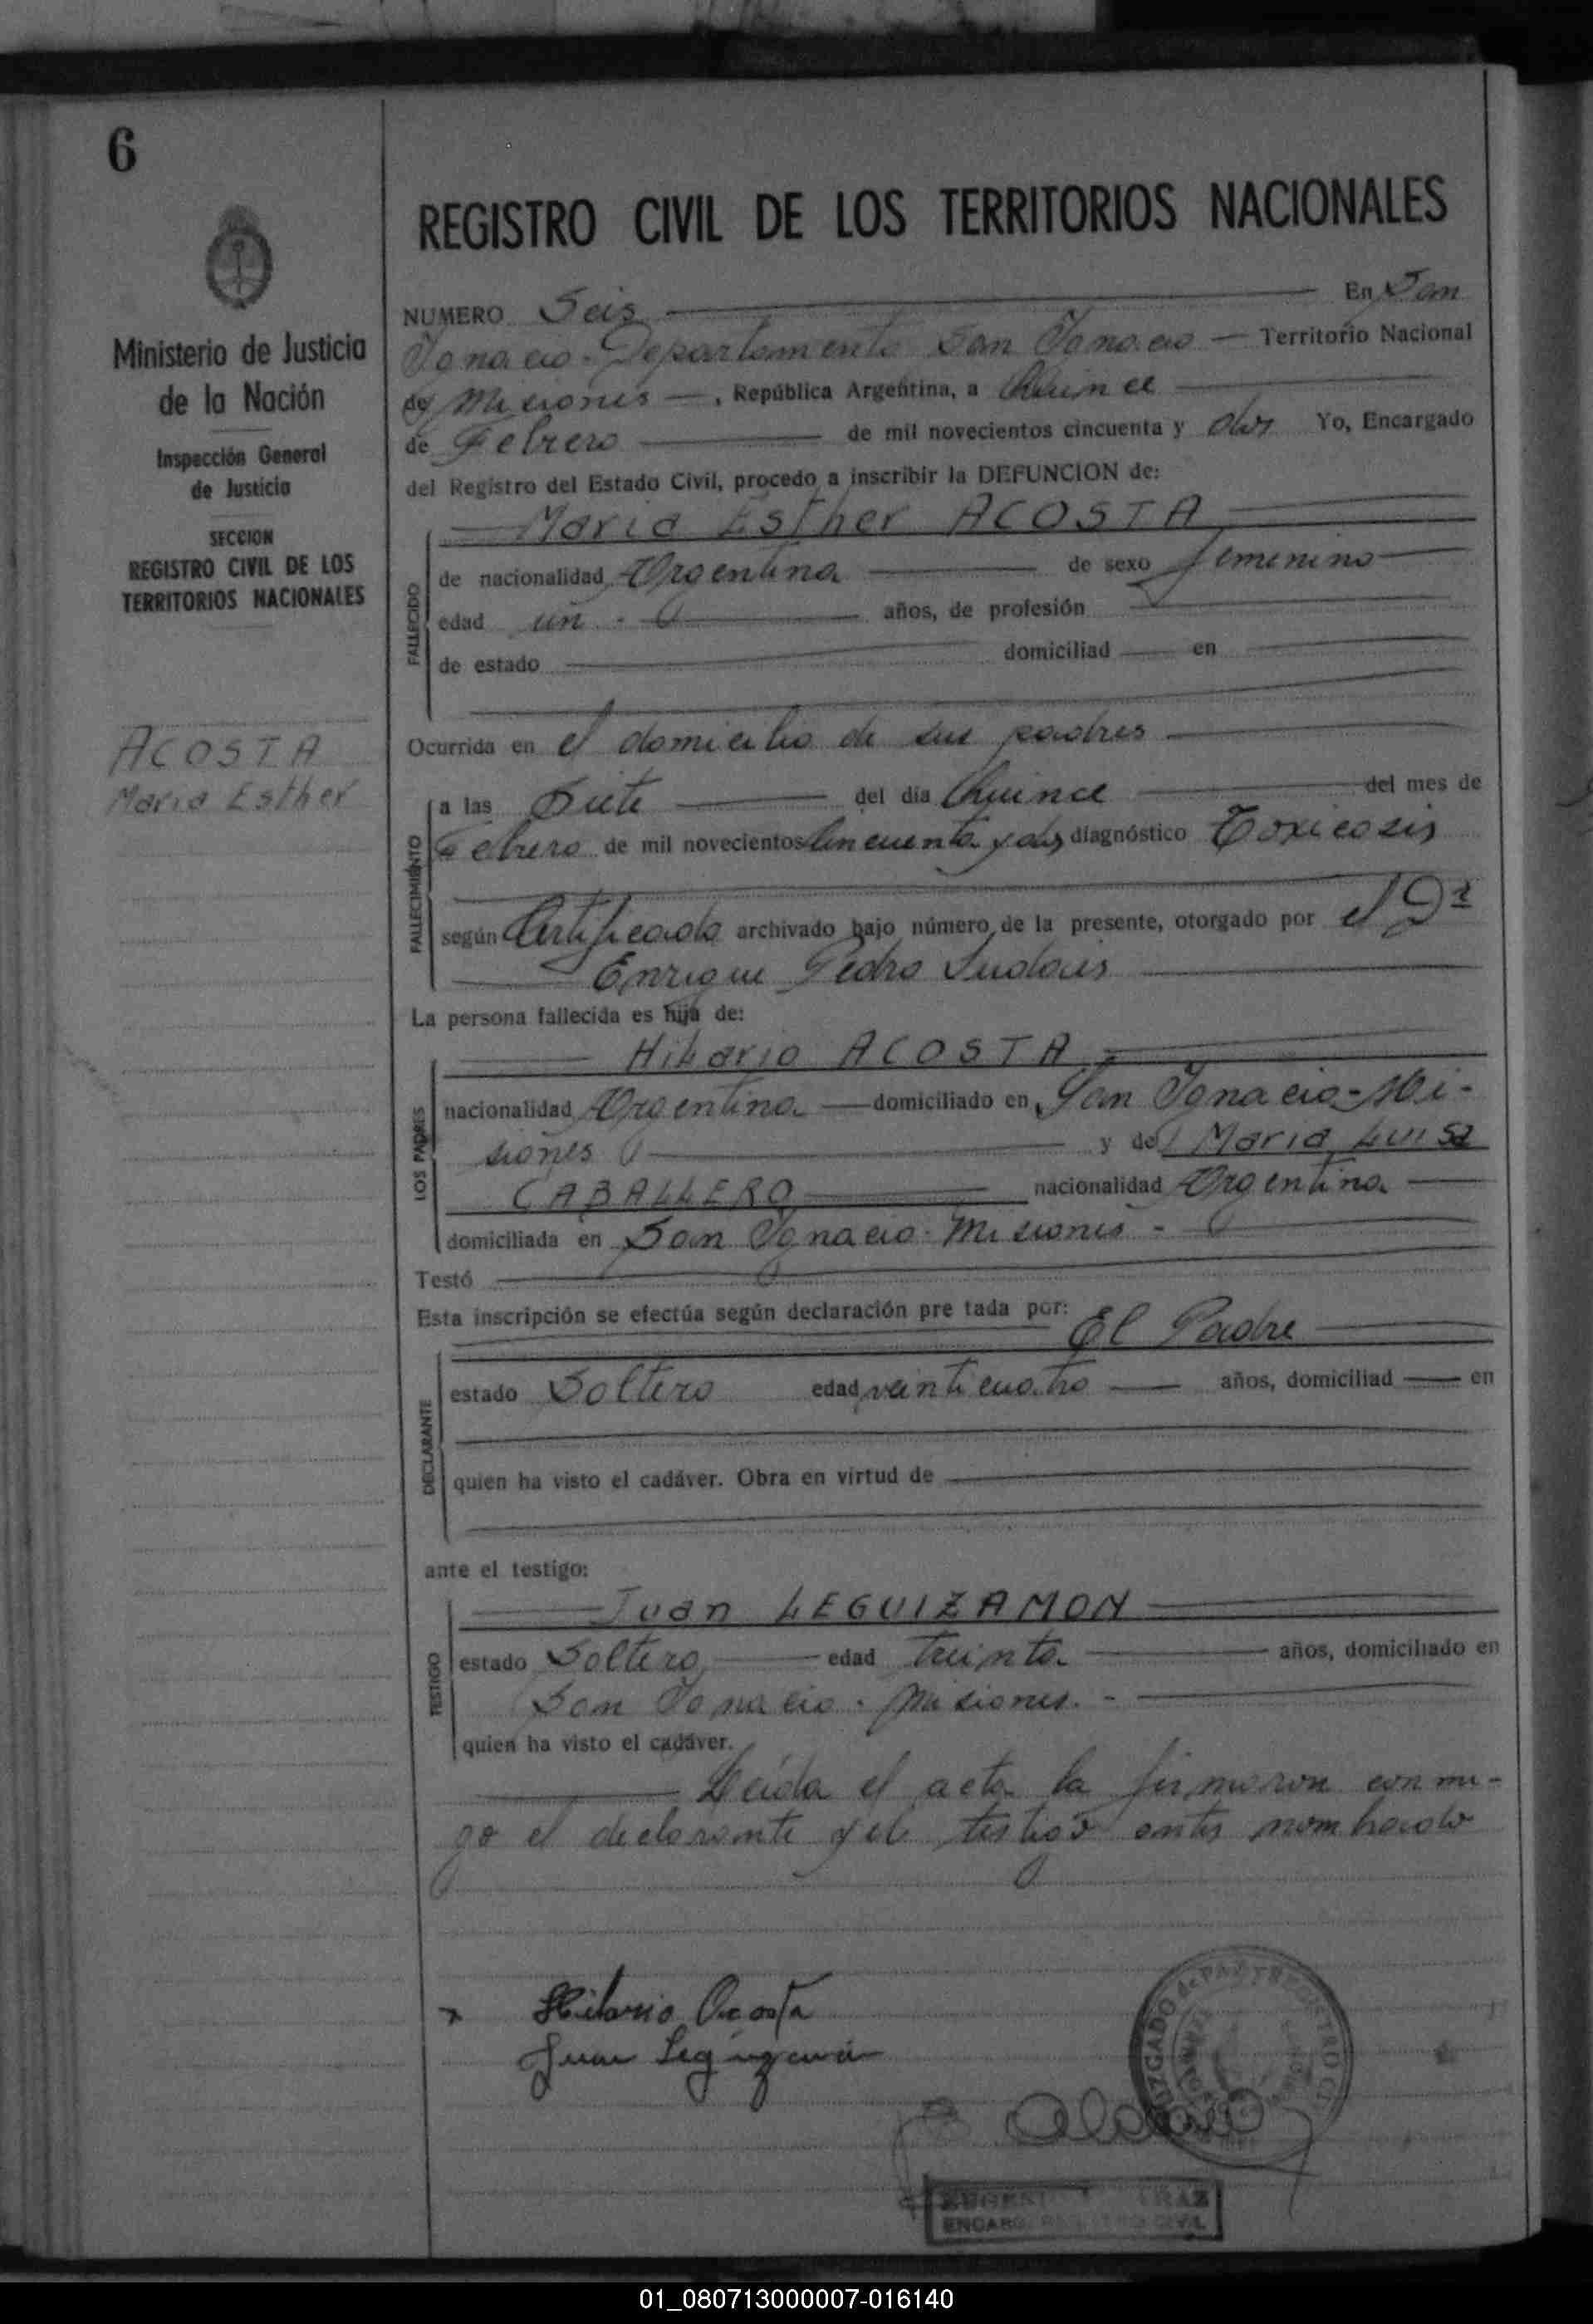 6
REGISTRO CIVIL DE LOS TERRITORIOS NACIONALES
Ministerio de Justicia
de la Nación
Inspección General
de Justicia
SECCION
REGISTRO CIVIL DE LOS
TERRITORIOS NACIONALES
ACOSTA
Maria Esther
NUMERO Seis En San
Ignacio - Departamento San Ignacio — Territorio Nacional
de Misiones —, República Argentina, a Quince
de Febrero de mil novecientos cincuenta y dos Yo, Encargado
del Registro del Estado Civil, procedo a inscribir la DEFUNCION de:
Maria Esther ACOSTA
FALLECIDO
de nacionalidad Argentina de sexo femenino
edad un - años, de profesión
de estado domiciliad en
Ocurrida en el domicilio de sus padres
FALLECIMIENTO
a las Siete del día Quince del mes de
Febrero de mil novecientos cincuenta y dos diagnóstico Toxicosis
según Certificado archivado bajo número de la presente, otorgado por el Dr
Enrique Pedro
La persona fallecida es hija de:
LOS PADRES
Hilario ACOSTA
nacionalidad Argentina — domiciliado en San Ignacio - Mi-
siones y de Maria Luisa
CABALLERO nacionalidad Argentina
domiciliada en San Ignacio - Misiones -
Testó
Esta inscripción se efectúa según declaración pre tada por:
El Padre
DECLARANTE
estado Soltero edad veinticuatro años, domiciliad en
quien ha visto el cadáver. Obra en virtud de
ante el testigo:
Juan LEGUIZAMON
TESTIGO
estado Soltero edad treinta años, domiciliado en
San Ignacio - Misiones. -
quien ha visto el cadáver.
Leída el acta la firmaron conmi-
go el declarante y el testigo antes nombrado
x Hilario Acosta
Juan
JUZGADO de PAZ REGISTRO CI
ENCARG. REGISTRO CIVIL
01_080713000007-016140